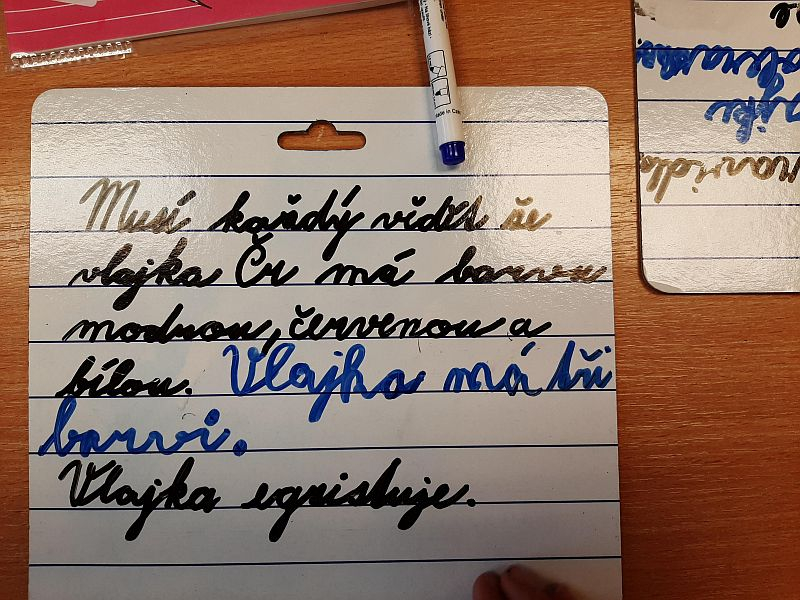 Musí každý vědět že
vlajka Čr má barvu
modrou, červenou a
bílou. Vlajka má tři
barvi.
Vlajka egzistuje.